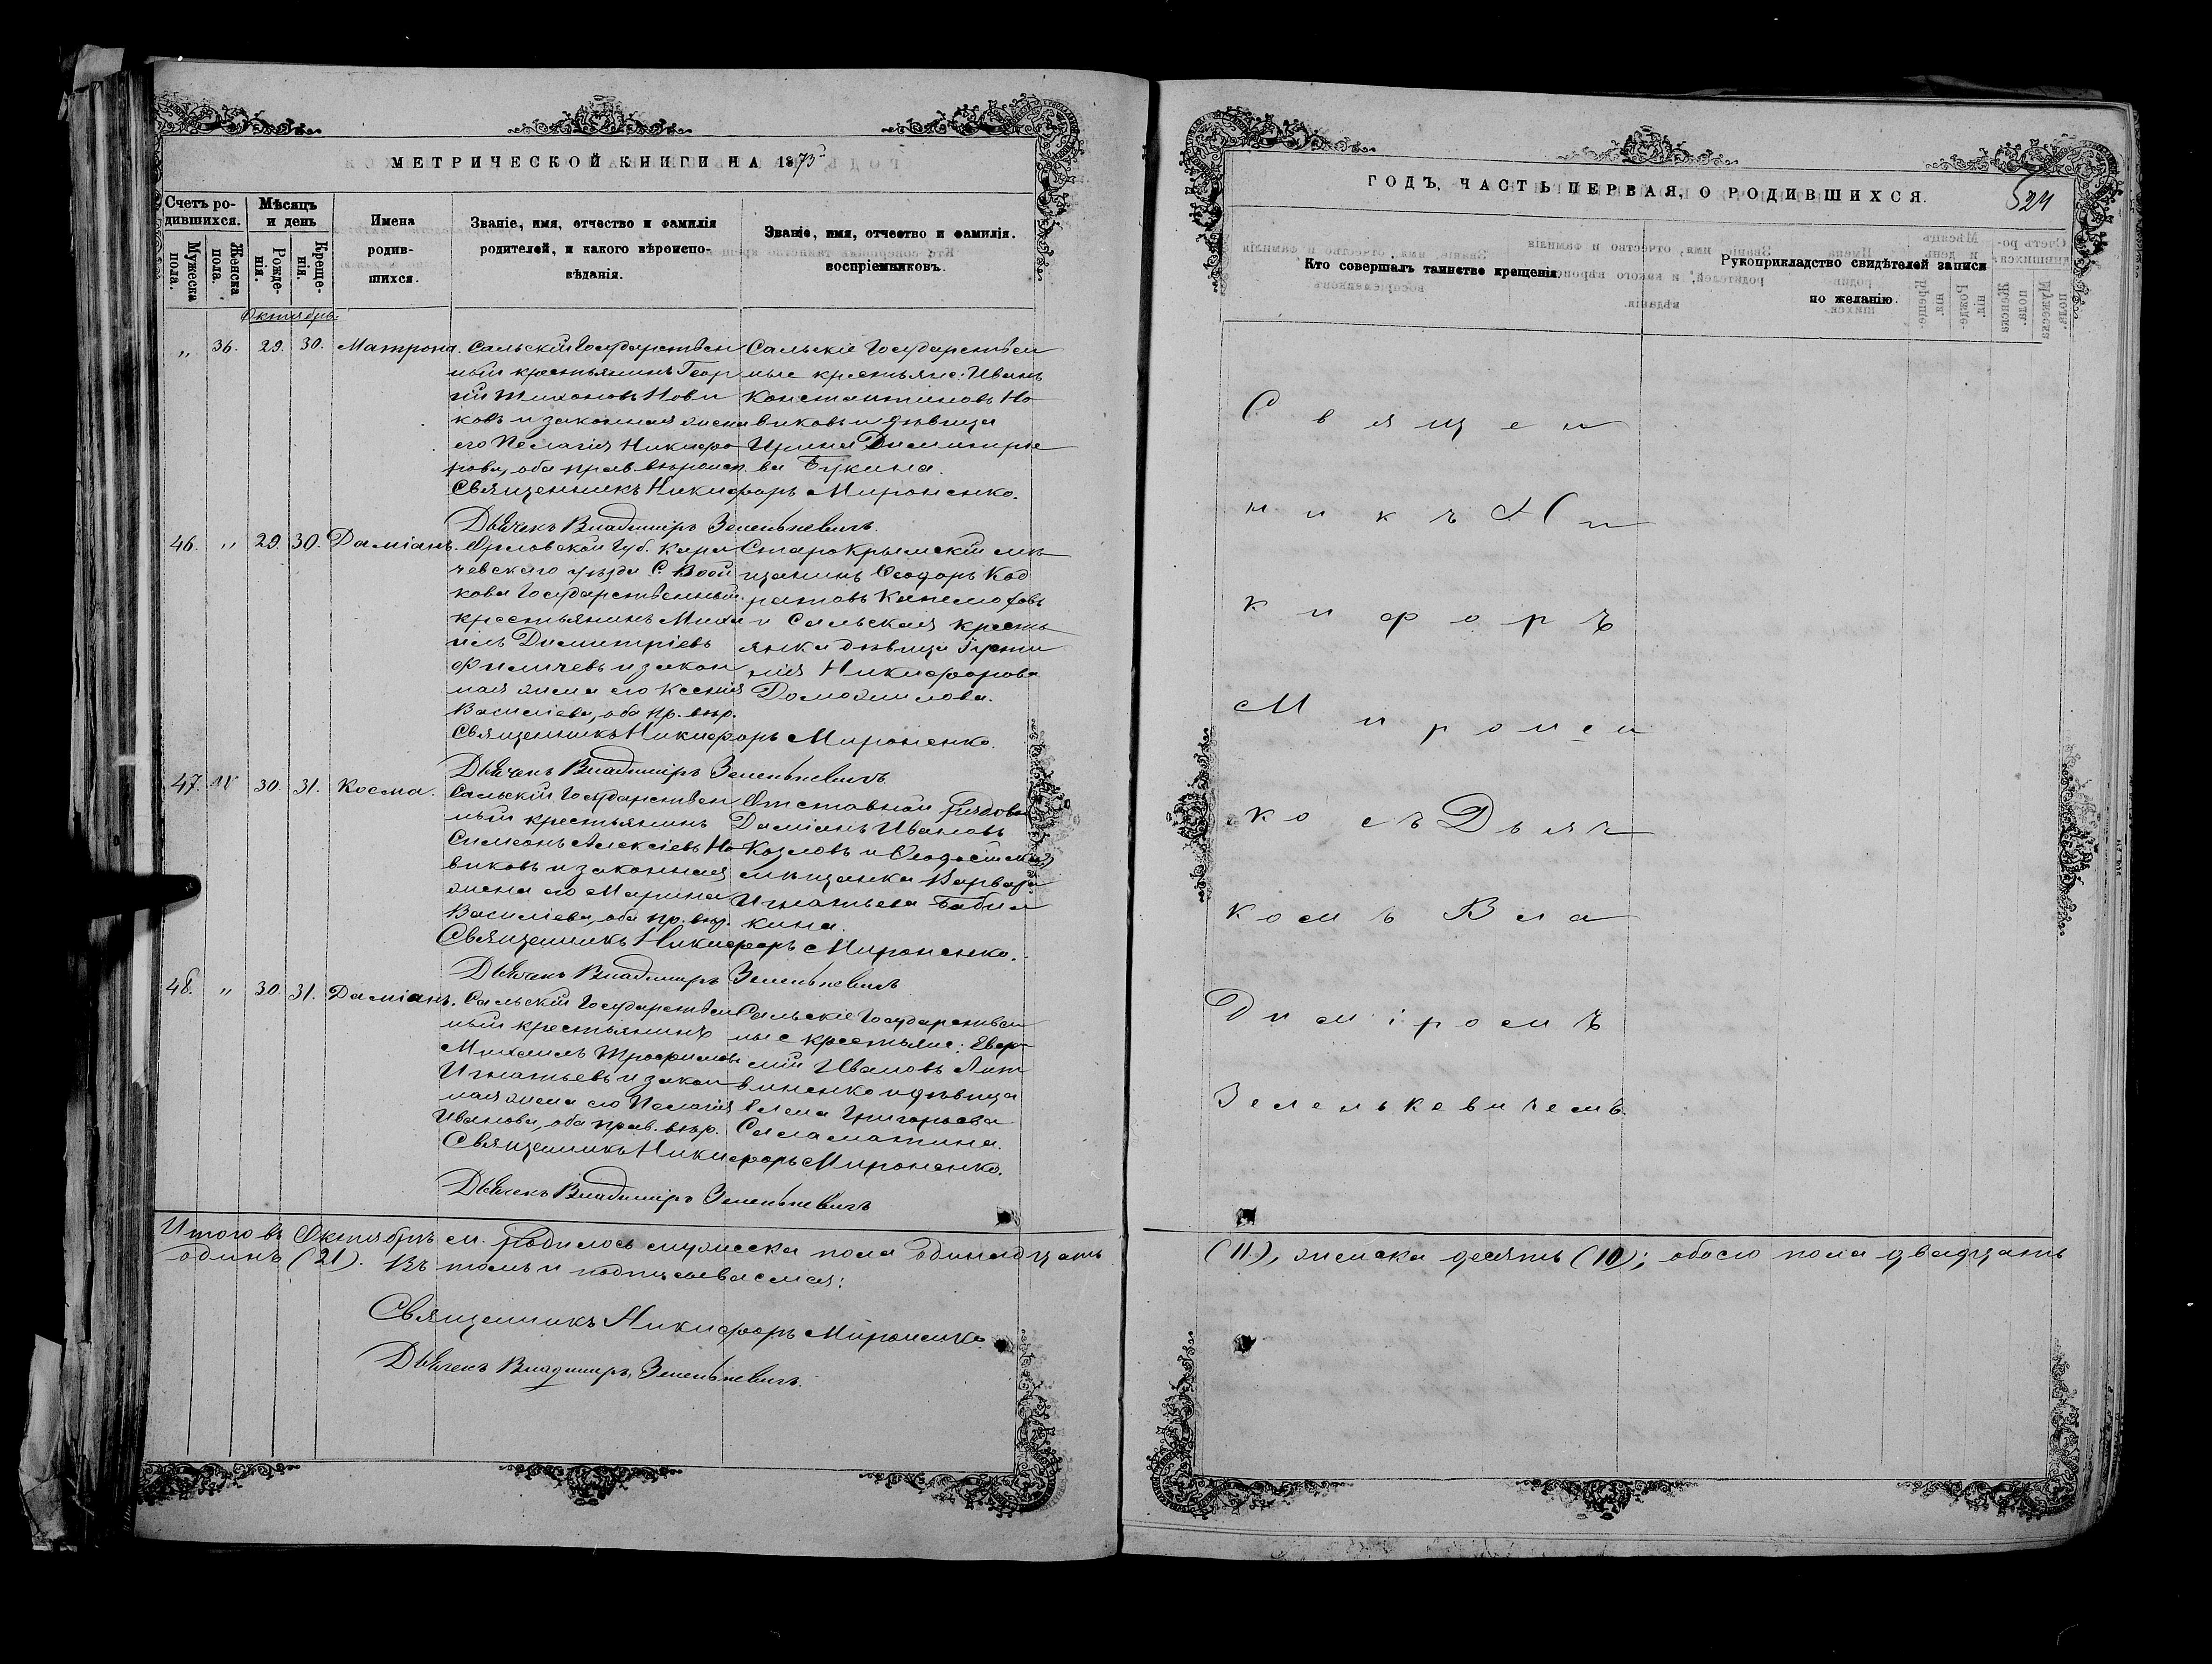 МЕТРИЧЕСКОЙ КНИГИ НА 1875
Счетъ ро-
дившихся.
Мужеска пола.
Женска пола.
Мѣсяцъ
и день
Рожде-
нія.
Креще-
нія.
Имена
родив-
шихся.
Званіе, имя, отчество и фамилія
родителей, и какого вѣроиспо-
вѣданія.
Званіе, имя, отчество и фамилія.
воспріемниковъ.
Октябрь.
„ 36. 29. 30. Матрона.
Сальскій Государствен
ный крестьянинъ Геор
гій Тихоновъ Нови
ковъ и законная жена
его Пелагія Никифо
рова, оба прав. вѣроисп.
Сальскіе Государствен
ные крестьяне: Иванъ
Константиновъ Но
виковъ и дѣвица
Ирина Димитріе
ва Букина.
Священникъ Никифоръ Мироненко.
Дьячекъ Владиміръ Зеленькевичъ
46. „ 29. 30. Даміанъ.
Орловской Губ. Кара
чевскаго уѣзда С. Бой
кова Государственный
крестьянинъ Миха
илъ Димитріевъ
Филичевъ и закон
ная жена его Ксенія
Василіева, оба пр. вѣр.
СтароКрымскій мѣ
щанинъ Ѳеодоръ Код
ратовъ
и Сальская кресть
янка дѣвица Іусти
нія Никифорова
Доможилова.
Священникъ Никифоръ Мироненко.
Дьячекъ Владиміръ Зеленькевичъ
47. „ 30. 31. Косма.
Сальскій Государствен
ный крестьянинъ
Симеонъ Алексіевъ Но
виковъ и законная
жена его Марина
Василіева, оба пр. вѣр.
Отставной рядовой
Даміанъ Ивановъ
Козловъ и Ѳеодосійская
мѣщанка Варвара
Игнатьева Бабил
кина.
Священникъ Никифоръ Мироненко.
Дьячекъ Владиміръ Зеленькевичъ
48. „ 30. 31. Даміанъ.
Сальскій Государствен
ный крестьянинъ
Михаилъ Трофимовъ
Игнатьевъ и закон
ная жена его Пелагія
Иванова, оба прав. вѣр.
Сальскіе Государствен
ные крестьяне: Евфи
мій Ивановъ Лит
виненко и дѣвица
Елена Григорьева
Саламатина.
Священникъ Никифоръ Мироненко.
Дьячекъ Владиміръ Зеленькевичъ
Итого въ Октябрѣ м. родилось мужеска пола одинадцать
одинъ (21). Въ томъ и подписываемся:
Священникъ Никифоръ Мироненко.
Дьячекъ Владиміръ Зеленькевичъ.
ГОДЪ, ЧАСТЬ ПЕРВАЯ, О РОДИВШИХСЯ.
524
Кто совершалъ таинство крещенія.
Рукоприкладство свидѣтелей записи
по желанію.
Священ
никъ Ни
кифоръ
Миронен
ко съ Дьяч
комъ Вла
диміромъ
Зеленькевичемъ.
(11), женска десять (10); обоего пола двадцать